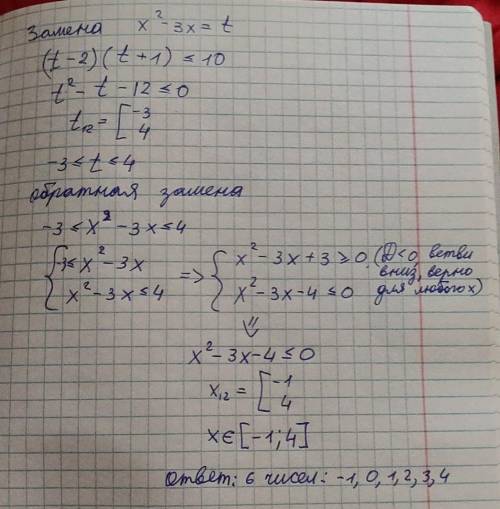 Замена x² - 3x = t
(t-2)(t+1) ≤ 10
t² - t - 12 ≤ 0
t₁₂ = [ -3
4
-3 ≤ t ≤ 4
обратная замена
-3 ≤ x² - 3x ≤ 4
{ -3 ≤ x² - 3x => { x² - 3x + 3 ≥ 0 (D < 0, ветви
вниз, верно
x² - 3x ≤ 4 x² - 3x - 4 ≤ 0 для любого x)
⇓
x² - 3x - 4 ≤ 0
x₁₂ = [ -1
4
x ∈ [-1; 4]
ответ: 6 чисел: -1, 0, 1, 2, 3, 4